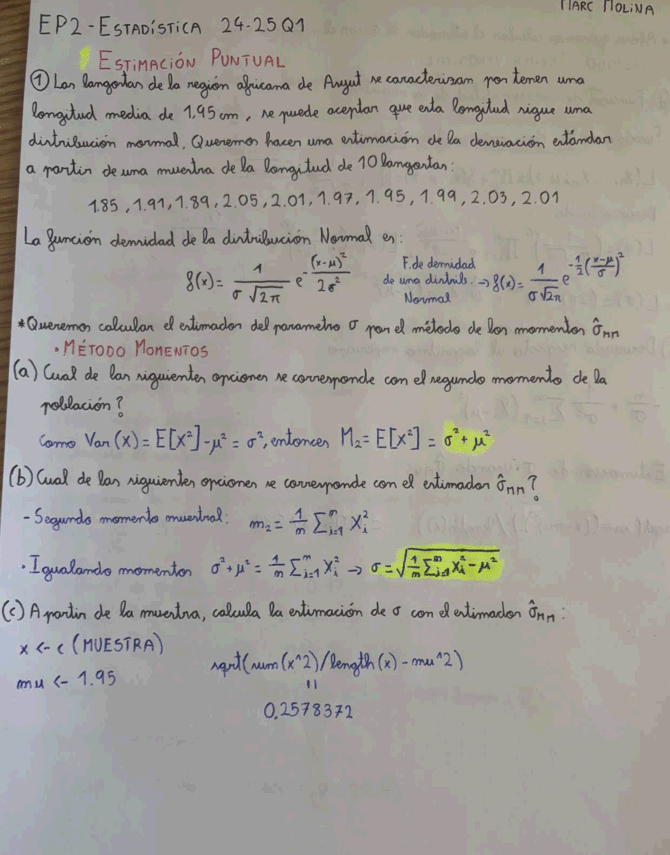 MARC MOLINA
EP2-ESTADÍSTICA 24-25Q1
ESTIMACIÓN PUNTUAL
① Las langostas de la región africana de Asyut se caracterizan por tener una
longitud media de 1,95 cm, se puede aceptar que esta longitud sigue una
distribución normal. Queremos hacer una estimación de la desviación estándar
a partir de una muestra de la longitud de 10 langostas:
1.85, 1.91, 1.89, 2.05, 2.01, 1.97, 1.95, 1.99, 2.03, 2.01
La función densidad de la distribución Normal es:
f(x) = 1/(σ√2π) e^-(x-μ)²/2σ²
F. de densidad
de una distrib. → f(x) = 1/(σ√2π) e^-½((x-μ)/σ)²
Normal
*Queremos calcular el estimador del parametro σ por el método de los momentos σ̂MM
• MÉTODO MOMENTOS
(a) Cual de las siguientes opciones se corresponde con el segundo momento de la
población?
Como Var(X) = E[X²] - μ² = σ², entonces M₂ = E[X²] = σ² + μ²
(b) Cual de las siguientes opciones se corresponde con el estimador σ̂MM?
- Segundo momento muestral: m₂ = 1/n ∑ⁿᵢ₌₁ Xᵢ²
• Igualando momentos σ² + μ² = 1/n ∑ⁿᵢ₌₁ Xᵢ² → σ = √(1/n ∑ⁿᵢ₌₁ Xᵢ² - μ²)
(c) A partir de la muestra, calcula la estimación de σ con el estimador σ̂MM:
x <- c (MUESTRA)
mu <- 1.95
sqrt(sum(x^2)/length(x) - mu^2)
=
0,2578372